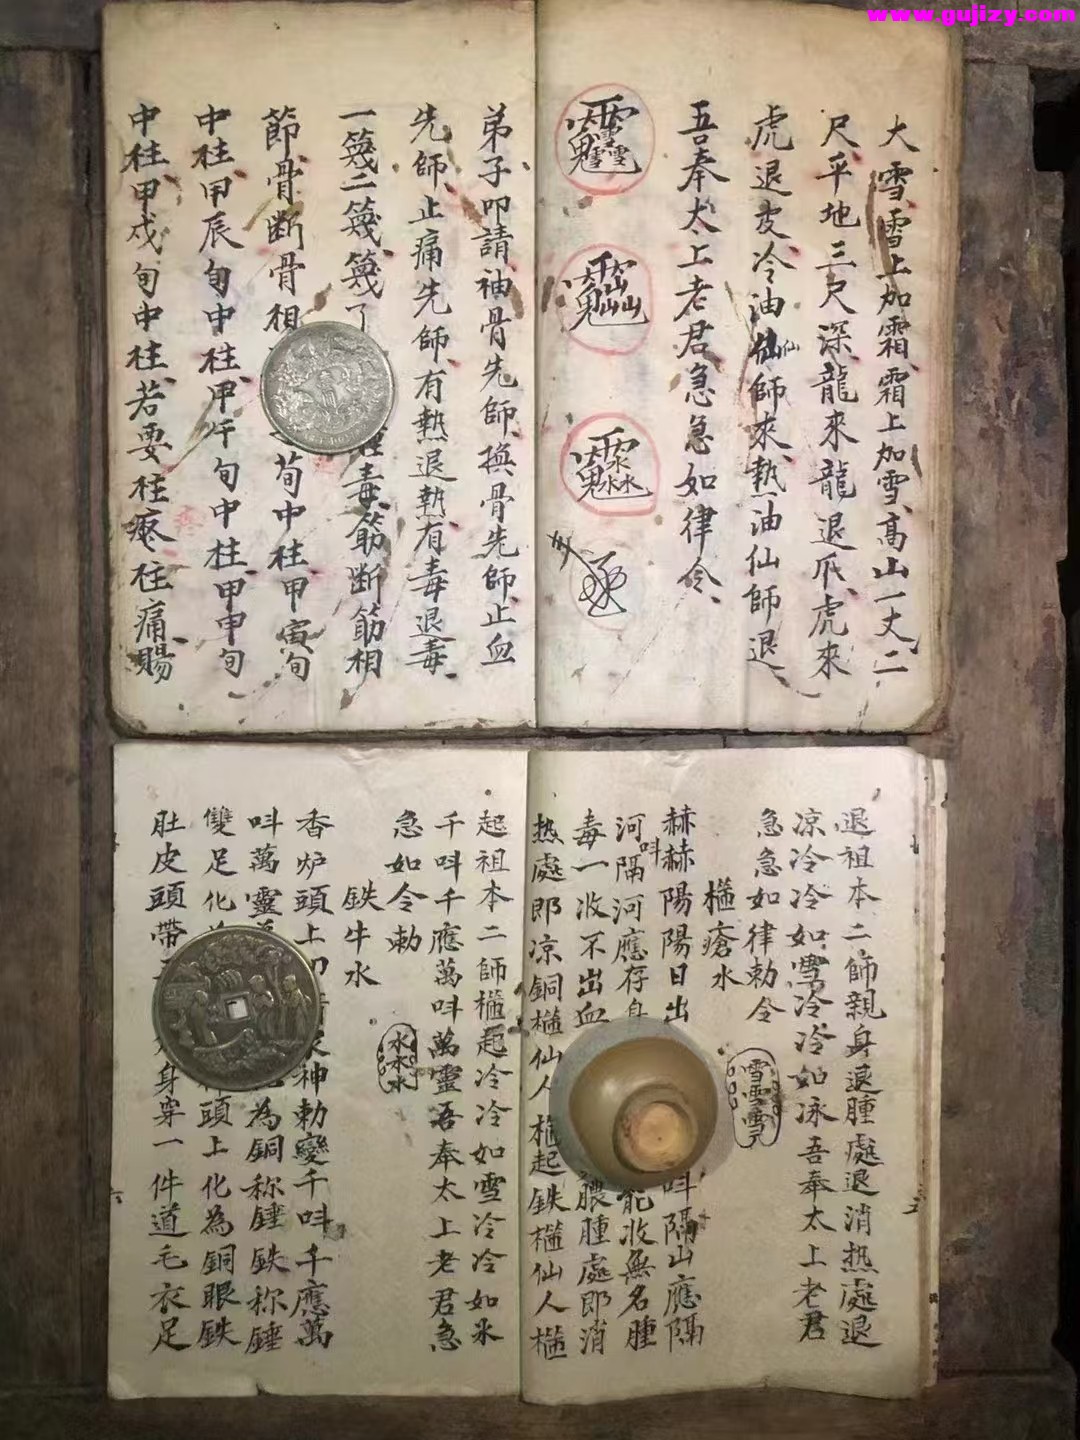 www.gujizy.com
大雪雪上加霜霜上加雪高山一丈二
尺平地三尺深龍來龍退爪虎來
虎退皮冷油仙仙師來熱油仙師退
吾奉太上老君急急如律令
弟子叩請袖骨先師換骨先師止血
先師止痛先師有熱退熱有毒退毒
一篾二篾篾了毒筋断筋相
節骨断骨相荀中柱甲寅旬
中柱甲辰旬中柱甲午旬中柱甲申旬
中柱甲戍旬中柱若要柱疼住痛賜
退祖本二師親身退腫處退消热處退
凉冷冷如雪冷冷如冰吾奉太上老君
急急如律勅令
雪雪雪
檤瘡水
赫赫陽陽日出叫隔山應隔
河叫隔河應存身能收無名腫
毒一收不出血膿腫處即消
热處即凉銅檤仙人檤起鉄檤仙人檤
起祖本二師檤起冷冷如雪冷冷如氷
千叫千應萬叫萬靈吾奉太上老君急
急如令勅
水水水
鉄牛水
香炉頭上神勅變千叫千應萬
叫萬靈為銅称錘鉄称錘
雙足化頭上化為銅眼鉄
肚皮頭帶身穿一件道毛衣足